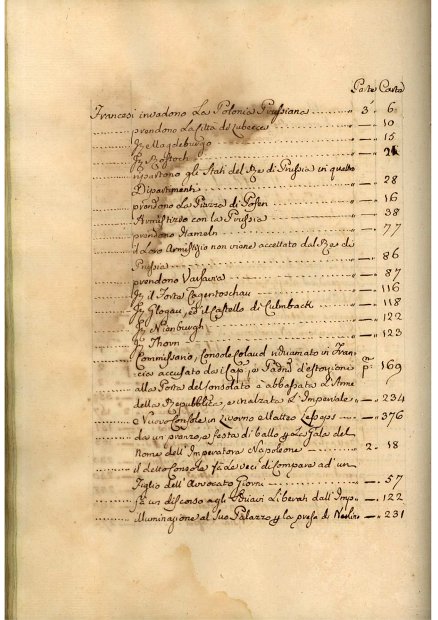 Parte Carta
Francesi invadono La Polonia Prussiana " 3ª 6
prendono La Città di Lubecca — " 10
Iƺ Magdeburgo — " 15
Iƺ Rostoch — "
ripartono gli Stati del Rè di Prussia in quattro
Dipartimenti — " 28
prendono La Piazza di Posen — " 16
Armistizio con la Prussia — " 38
prendono Hameln — " 77
il Loro Armistizio non viene accettato dal Rè di
Prussia — " 86
prendono Varsavia — " 87
Iƺ il Forte — " 116
Iƺ Glogau, ed il Castello di Culmback — " 118
Iƺ Nienburgh — " 122
Iƺ Thorn — " 123
Commissario, Console richiamato in Fran-
cia accusato d'estorzione pª 169
alla Porta del Consolato è abbassata L'Arme
della Repubblica, e inalzata L'Imperiale — " 234
e Nuovo Console in Livorno Matteo Lesseps — " 376
da un pranzo, e festa di ballo p La Gala del
Nome dell'Imperatore Napoleone " 2. " 18
il detto Console fà Le veci di Compare ad un
Figlio dell'Avvocato — " 57
fà un discorso agli Schiavi Liberati dall'Imp. — " 122
illuminazione al Suo Palazzo p la presa di — " 231